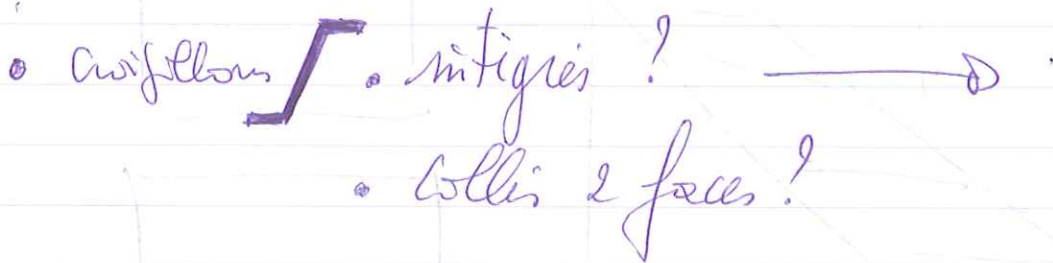 • croisillons • intégrés ?
• collés 2 faces ?